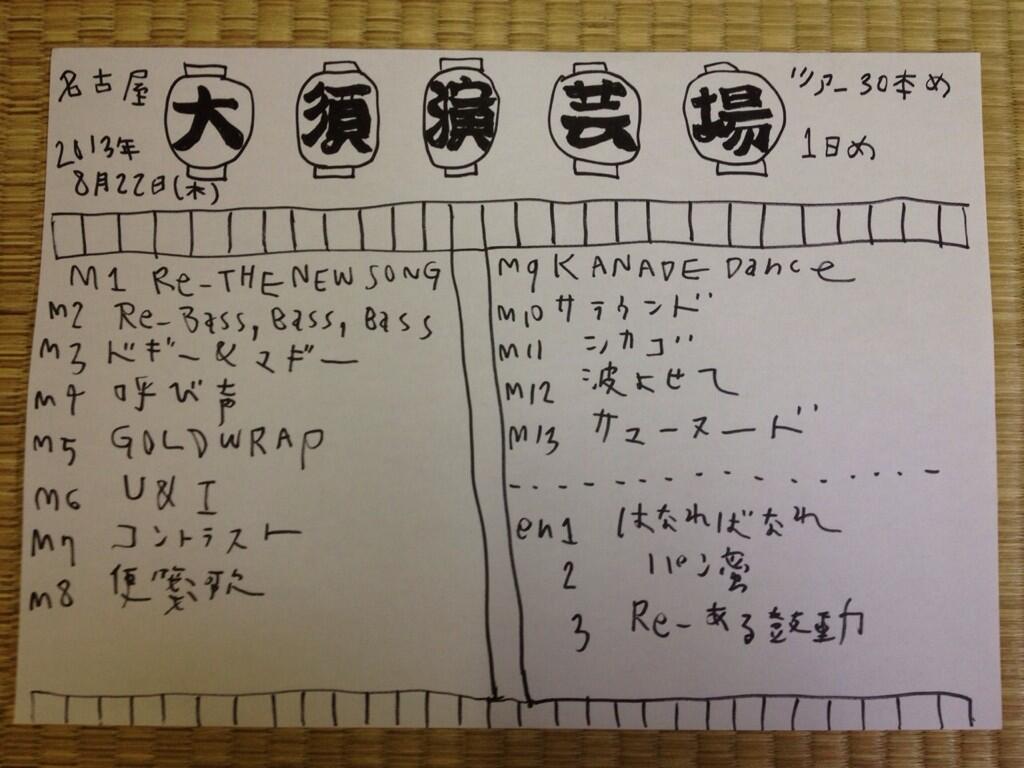 名古屋
大須演芸場
ツアー30本め
2013年
8月22日(木)
1日め
M1 Re-THE NEW SONG
M2 Re-Bass, Bass, Bass
M3 ドギー&マギー
M4 呼び声
M5 GOLD WRAP
M6 U&I
M7 コントラスト
M8 便箋歌
M9 KANADE Dance
M10 サラウンド
M11 シカゴ
M12 波よせて
M13 サマーヌード
en1 はなればなれ
2
3 Re-ある鼓動